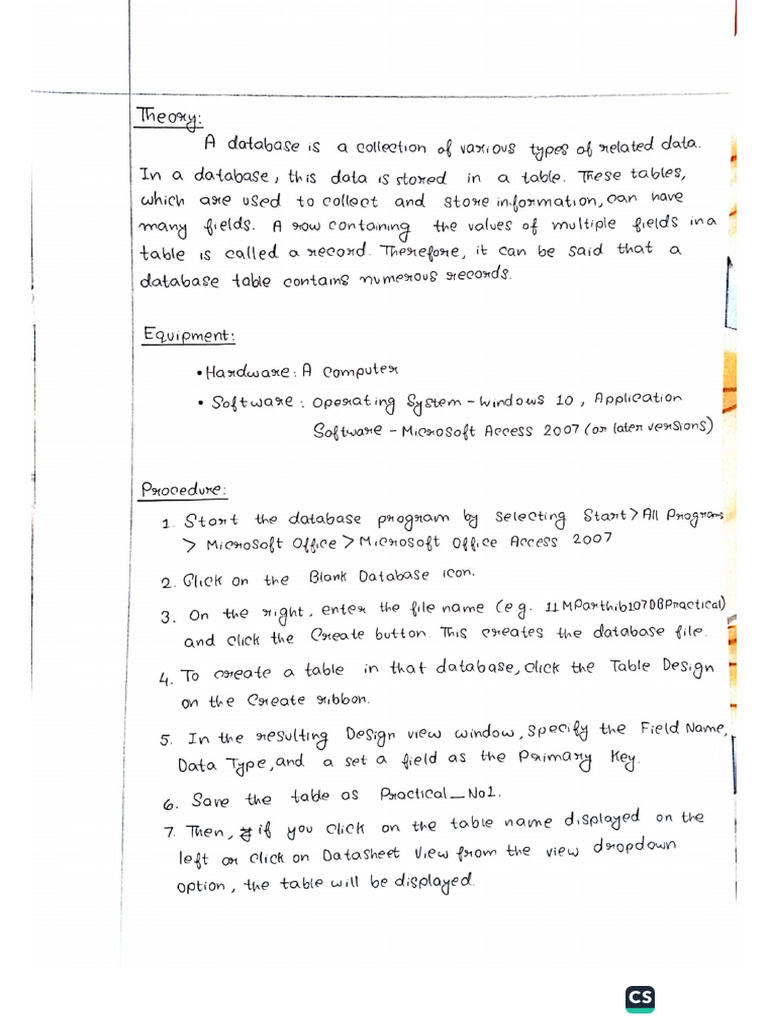 Theory:
A database is a collection of various types of related data.
In a database, this data is stored in a table. These tables,
which are used to collect and store information, can have
many fields. A row containing the values of multiple fields in a
table is called a record. Therefore, it can be said that a
database table contains numerous records.
Equipment:
• Hardware: A Computer
• Software: Operating System - Windows 10, Application
Software - Microsoft Access 2007 (or later versions)
Procedure:
1. Start the database program by selecting Start > All Programs
> Microsoft Office > Microsoft Office Access 2007
2. Click on the Blank Database icon.
3. On the right, enter the file name (e.g. 11MParthib1070BPractical)
and click the Create button. This creates the database file.
4. To create a table in that database, click the Table Design
on the Create ribbon.
5. In the resulting Design view window, specify the Field Name,
Data Type, and a set a field as the Primary Key.
6. Save the table as Practical_No1.
7. Then, if you click on the table name displayed on the
left or click on Datasheet View from the view dropdown
option, the table will be displayed.
CS